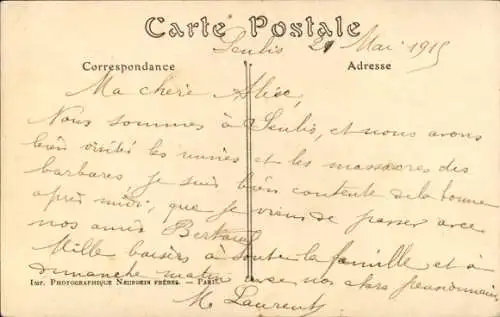 Carte Postale
Senlis 21 Mai 1915
Correspondance
Adresse
Ma chère Alice,
Nous sommes à Senlis, et nous avons
bien visité les ruines et les massacres des
barbares je suis bien contente de la bonne
après midi, que je viens de passer avec
nos amis Bertaux
Mille baisers à toute la famille et à
dimanche matin avec nos chers pensionnaires
IMP. PHOTOGRAPHIQUE NEURDEIN FRÈRES. — PARIS
M Laurent